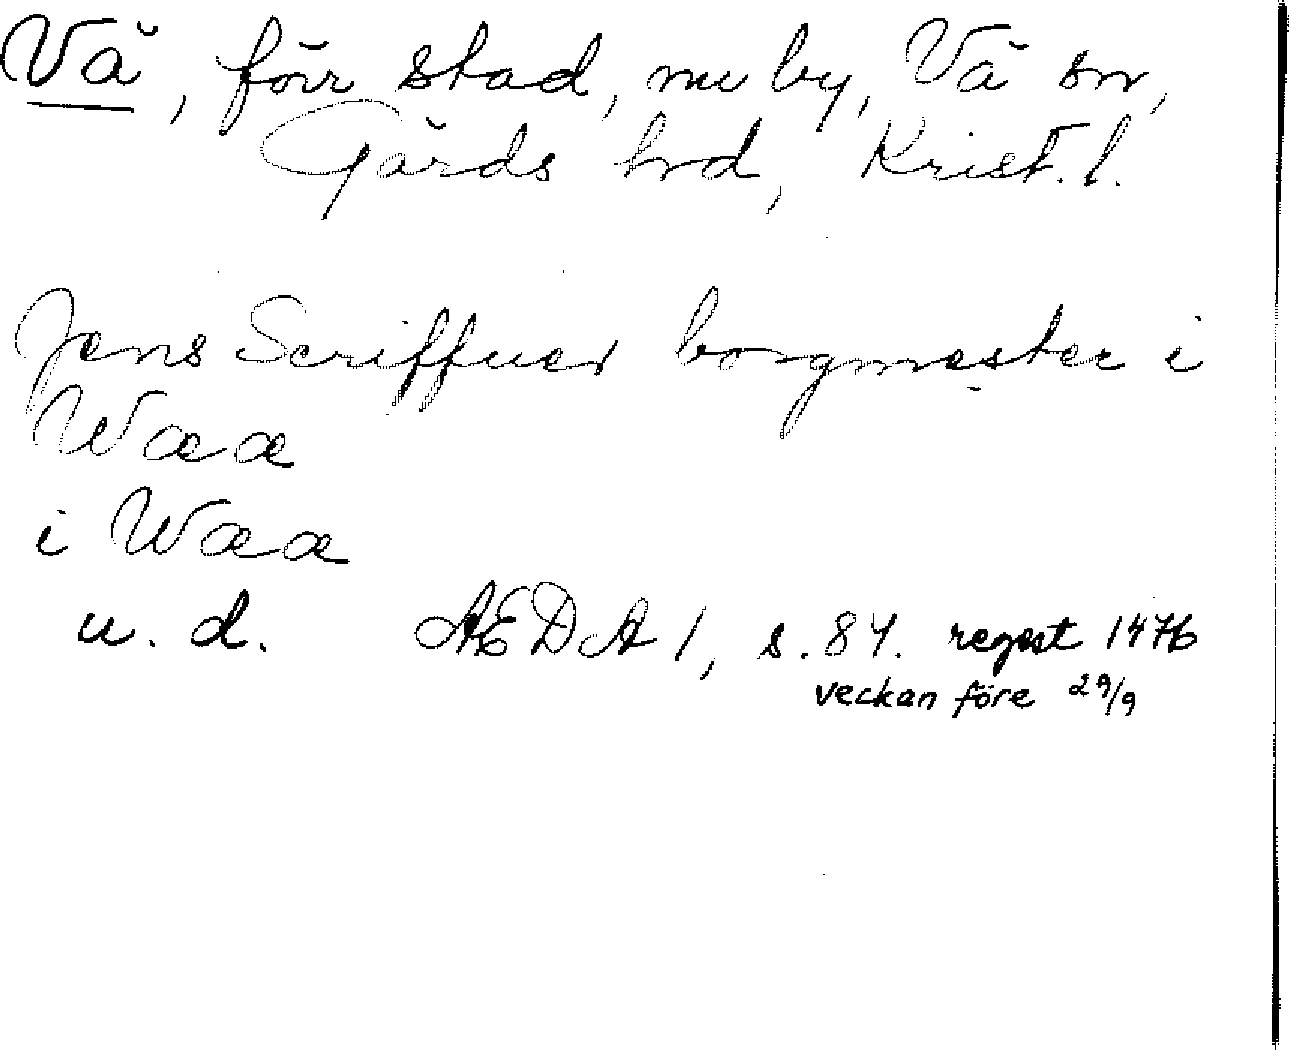 Vä, förr stad, nu by, Vä sn,
Gärds hrd, Krist. l.
Jens Scriffuer borgmester i
Waa
i Waa
u. d. ÆDA 1, s. 84. regest 1476
veckan före 29/9